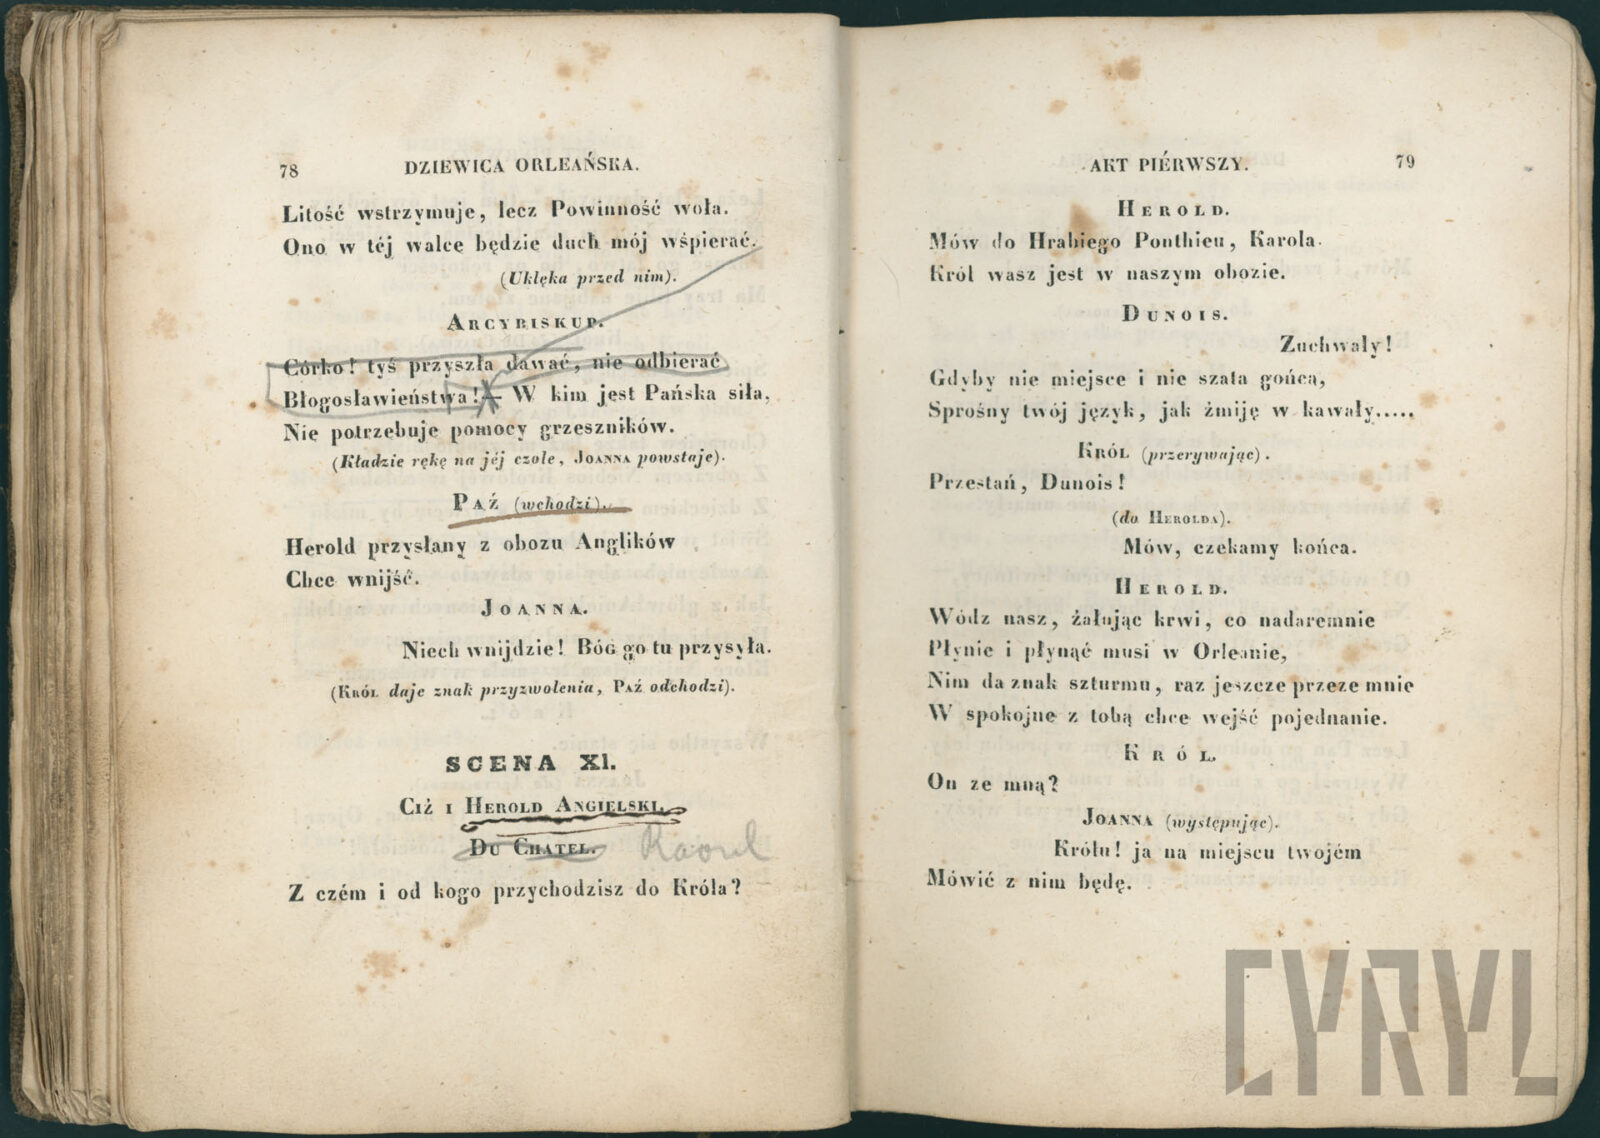 78 DZIEWICA ORLEAŃSKA.
Litość wstrzymuje, lecz Powinność woła.
Ono w téj walce będzie duch mój wśpierać.
(Uklęka przed nim).
ARCYBISKUP.
Córko! tyś przyszła dawać, nie odbierać
Błogosławieństwa!— W kim jest Pańska siła,
Nie potrzebuje pomocy grzeszników.
(Kładzie rękę na jéj czole, JOANNA powstaje).
PAŹ (wchodzi).
Herold przysłany z obozu Anglików
Chce wnijść.
JOANNA.
Niech wnijdzie! Bóg go tu przysyła.
(KRÓL daje znak przyzwolenia, PAŹ odchodzi).
SCENA XI.
CIŻ I HEROLD ANGIELSKI.
DU CHATEL. Raoul
Z czém i od kogo przychodzisz do Króla?
AKT PIÉRWSZY. 79
HEROLD.
Mów do Hrabiego Ponthieu, Karola.
Król wasz jest w naszym obozie.
DUNOIS.
Zuchwały!
Gdyby nie miejsce i nie szata gońca,
Sprośny twój język, jak żmiję w kawały.....
KRÓL (przerywając).
Przestań, Dunois!
(do HEROLDA).
Mów, czekamy końca.
HEROLD.
Wódz nasz, żałując krwi, co nadaremnie
Płynie i płynąć musi w Orleanie,
Nim da znak szturmu, raz jeszcze przeze mnie
W spokojne z tobą chce wejść pojednanie.
KRÓL.
On ze mną?
JOANNA (występując).
Królu! ja na miejscu twojém
Mówić z nim będę.
CYRYL